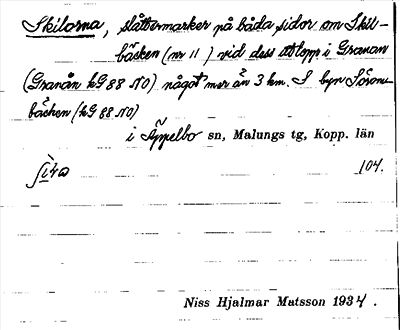 Skilorna, slåttermarker på båda sidor om Skil-
bäcken (nr 11) vid dess utlopp i Granan
(Granån kG 88 NO) något mer än 3 km. S byn
bäcken (kG 88 NO)
i Äppelbo sn, Malungs tg, Kopp. län
104.
Niss Hjalmar Matsson 1934.